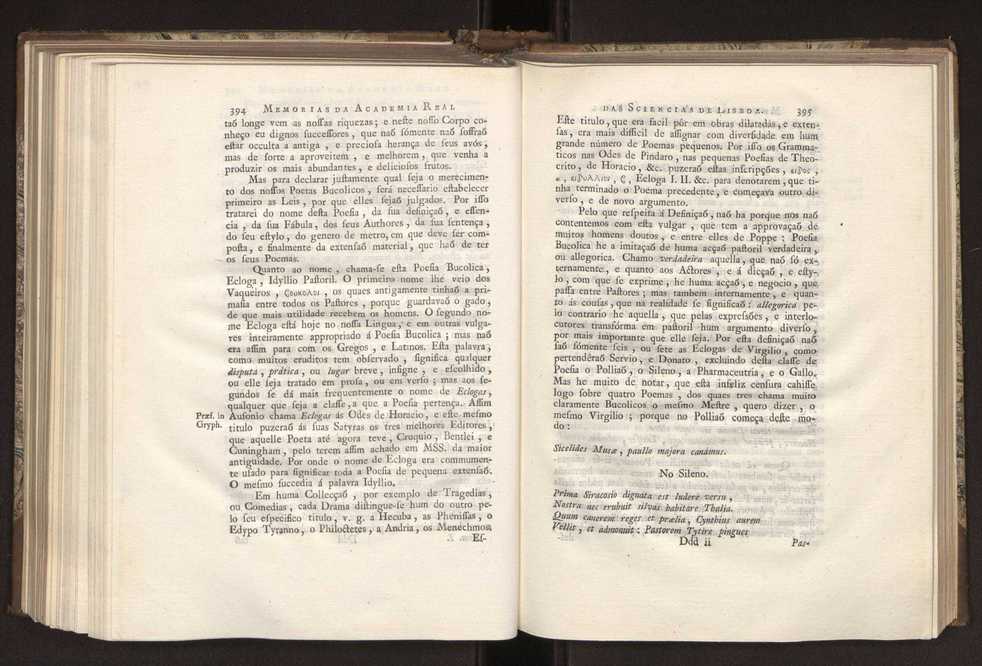 394 MEMORIAS DA ACADEMIA REAL
taõ longe vem as noſſas riquezas; e neſte noſſo Corpo co-
nheço eu dignos ſucceſſores, que naõ ſómente naõ ſoffraõ
eſtar occulta a antiga, e precioſa herança de ſeus avós,
mas de ſorte a aproveitem, e melhorem, que venha a
produzir os mais abundantes, e delicioſos frutos.
Mas para declarar juſtamente qual ſeja o merecimen-
to dos noſſos Poetas Bucolicos, ſerá neceſſario eſtabelecer
primeiro as Leis, por que elles ſejaõ julgados. Por iſſo
tratarei do nome deſta Poeſia, da ſua definiçaõ, e eſſen-
cia, da ſua Fábula, dos ſeus Authores, da ſua ſentença,
do ſeu eſtylo, do genero de metro, em que deve ſer com-
poſta, e finalmente da extenſaõ material, que haõ de ter
os ſeus Poemas.
Quanto ao nome, chama-ſe eſta Poeſia Bucolica,
Ecloga, Idyllio Paſtoril. O primeiro nome lhe veio dos
Vaqueiros, ϐουκολοι, os quaes antigamente tinhaõ a pri-
maſia entre todos os Paſtores, porque guardavaõ o gado,
de que mais utilidade recebem os homens. O ſegundo no-
me Ecloga eſtá hoje no noſſa Lingua, e em outras vulga-
res inteiramente appropriado á Poeſia Bucolica; mas naõ
era aſſim para com os Gregos, e Latinos. Eſta palavra,
como muitos eruditos tem obſervado, ſignifica qualquer
diſputa, prática, ou lugar breve, inſigne, e eſcolhido,
ou elle ſeja tratado em proſa, ou em verſo; mas aos ſe-
gundos ſe dá mais frequentemente o nome de Eclogas,
qualquer que ſeja a claſſe, a que a Poeſia pertença. Aſſim
Præf. in Auſonio chama Eclogas ás Odes de Horacio, e eſte meſmo
Gryph. titulo puzeraõ ás ſuas Satyras os tres melhores Editores,
que aquelle Poeta até agora teve, Cruquio, Bentlei, e
Cuningham, pelo terem aſſim achado em MSS. da maior
antiguidade. Por onde o nome de Ecloga era commumen-
te uſado para ſignificar toda a Poeſia de pequena extenſaõ.
O meſmo ſuccedia á palavra Idyllio.
Em huma Collecçaõ, por exemplo de Tragedias,
ou Comedias, cada Drama diſtingue-ſe hum do outro pe-
lo ſeu eſpecifico titulo, v. g. a Hecuba, as Pheniſſas, o
Edypo Tyranno, o Philoctetes, a Andria, os Menechmos.
Eſ-
DAS SCIENCIAS DE LISBOA. 395
Eſte titulo, que era facil pôr em obras dilatadas, e exten-
ſas, era mais difficil de aſſignar com diverſidade em hum
grande número de Poemas pequenos. Por iſſo os Gramma-
ticos nas Odes de Pindaro, nas pequenas Poeſias de Theo-
crito, de Horacio, &c. puzeraõ eſtas inſcripções, ειδος,
α, ειδυλλιον, ϐ, Ecloga I. II. &c. para denotarem, que ti-
nha terminado o Poema precedente, e começava outro di-
verſo, e de novo argumento.
Pelo que reſpeita á Definiçaõ, naõ ha porque nos naõ
contentemos com eſta vulgar, que tem a approvaçaõ de
muitos homens doutos, e entre elles de Poppe: Poeſia
Bucolica he a imitaçaõ de huma acçaõ paſtoril verdadeira,
ou allegorica. Chamo verdadeira aquella, que naõ ſó ex-
ternamente, e quanto aos Actores, e á dicçaõ, e eſty-
lo, com que ſe exprime, he huma acçaõ, e negocio, que
paſſa entre Paſtores; mas tambem internamente, e quan-
to ás couſas, que na realidade ſe ſignificaõ: allegorica pe-
lo contrario he aquella, que pelas expreſsões, e interlo-
cutores transfórma em paſtoril hum argumento diverſo,
por mais importante que elle ſeja. Por eſta definiçaõ naõ
ſaõ ſómente ſeis, ou ſete as Eclogas de Virgilio, como
pertendêraõ Servio, e Donato, excluindo deſta claſſe de
Poeſia o Polliaõ, o Sileno, a Pharmaceutria, e o Gallo.
Mas he muito de notar, que eſta infeliz cenſura cahiſſe
logo ſobre quatro Poemas, dos quaes tres chama muito
claramente Bucolicos o meſmo Meſtre, quero dizer, o
meſmo Virgilio; porque no Polliaõ começa deſte mo-
do:
Sicelides Muſæ, paullo majora canámus.
No Sileno.
Prima Siracoſio dignata est ludere verſu,
Noſtra nec erubuit ſilvas habitare Thalia.
Quum canerem reges et prælia, Cynthius aurem
Vellit, et admonuit: Paſtorem Tytire pingues
Ddd ii Paſ-